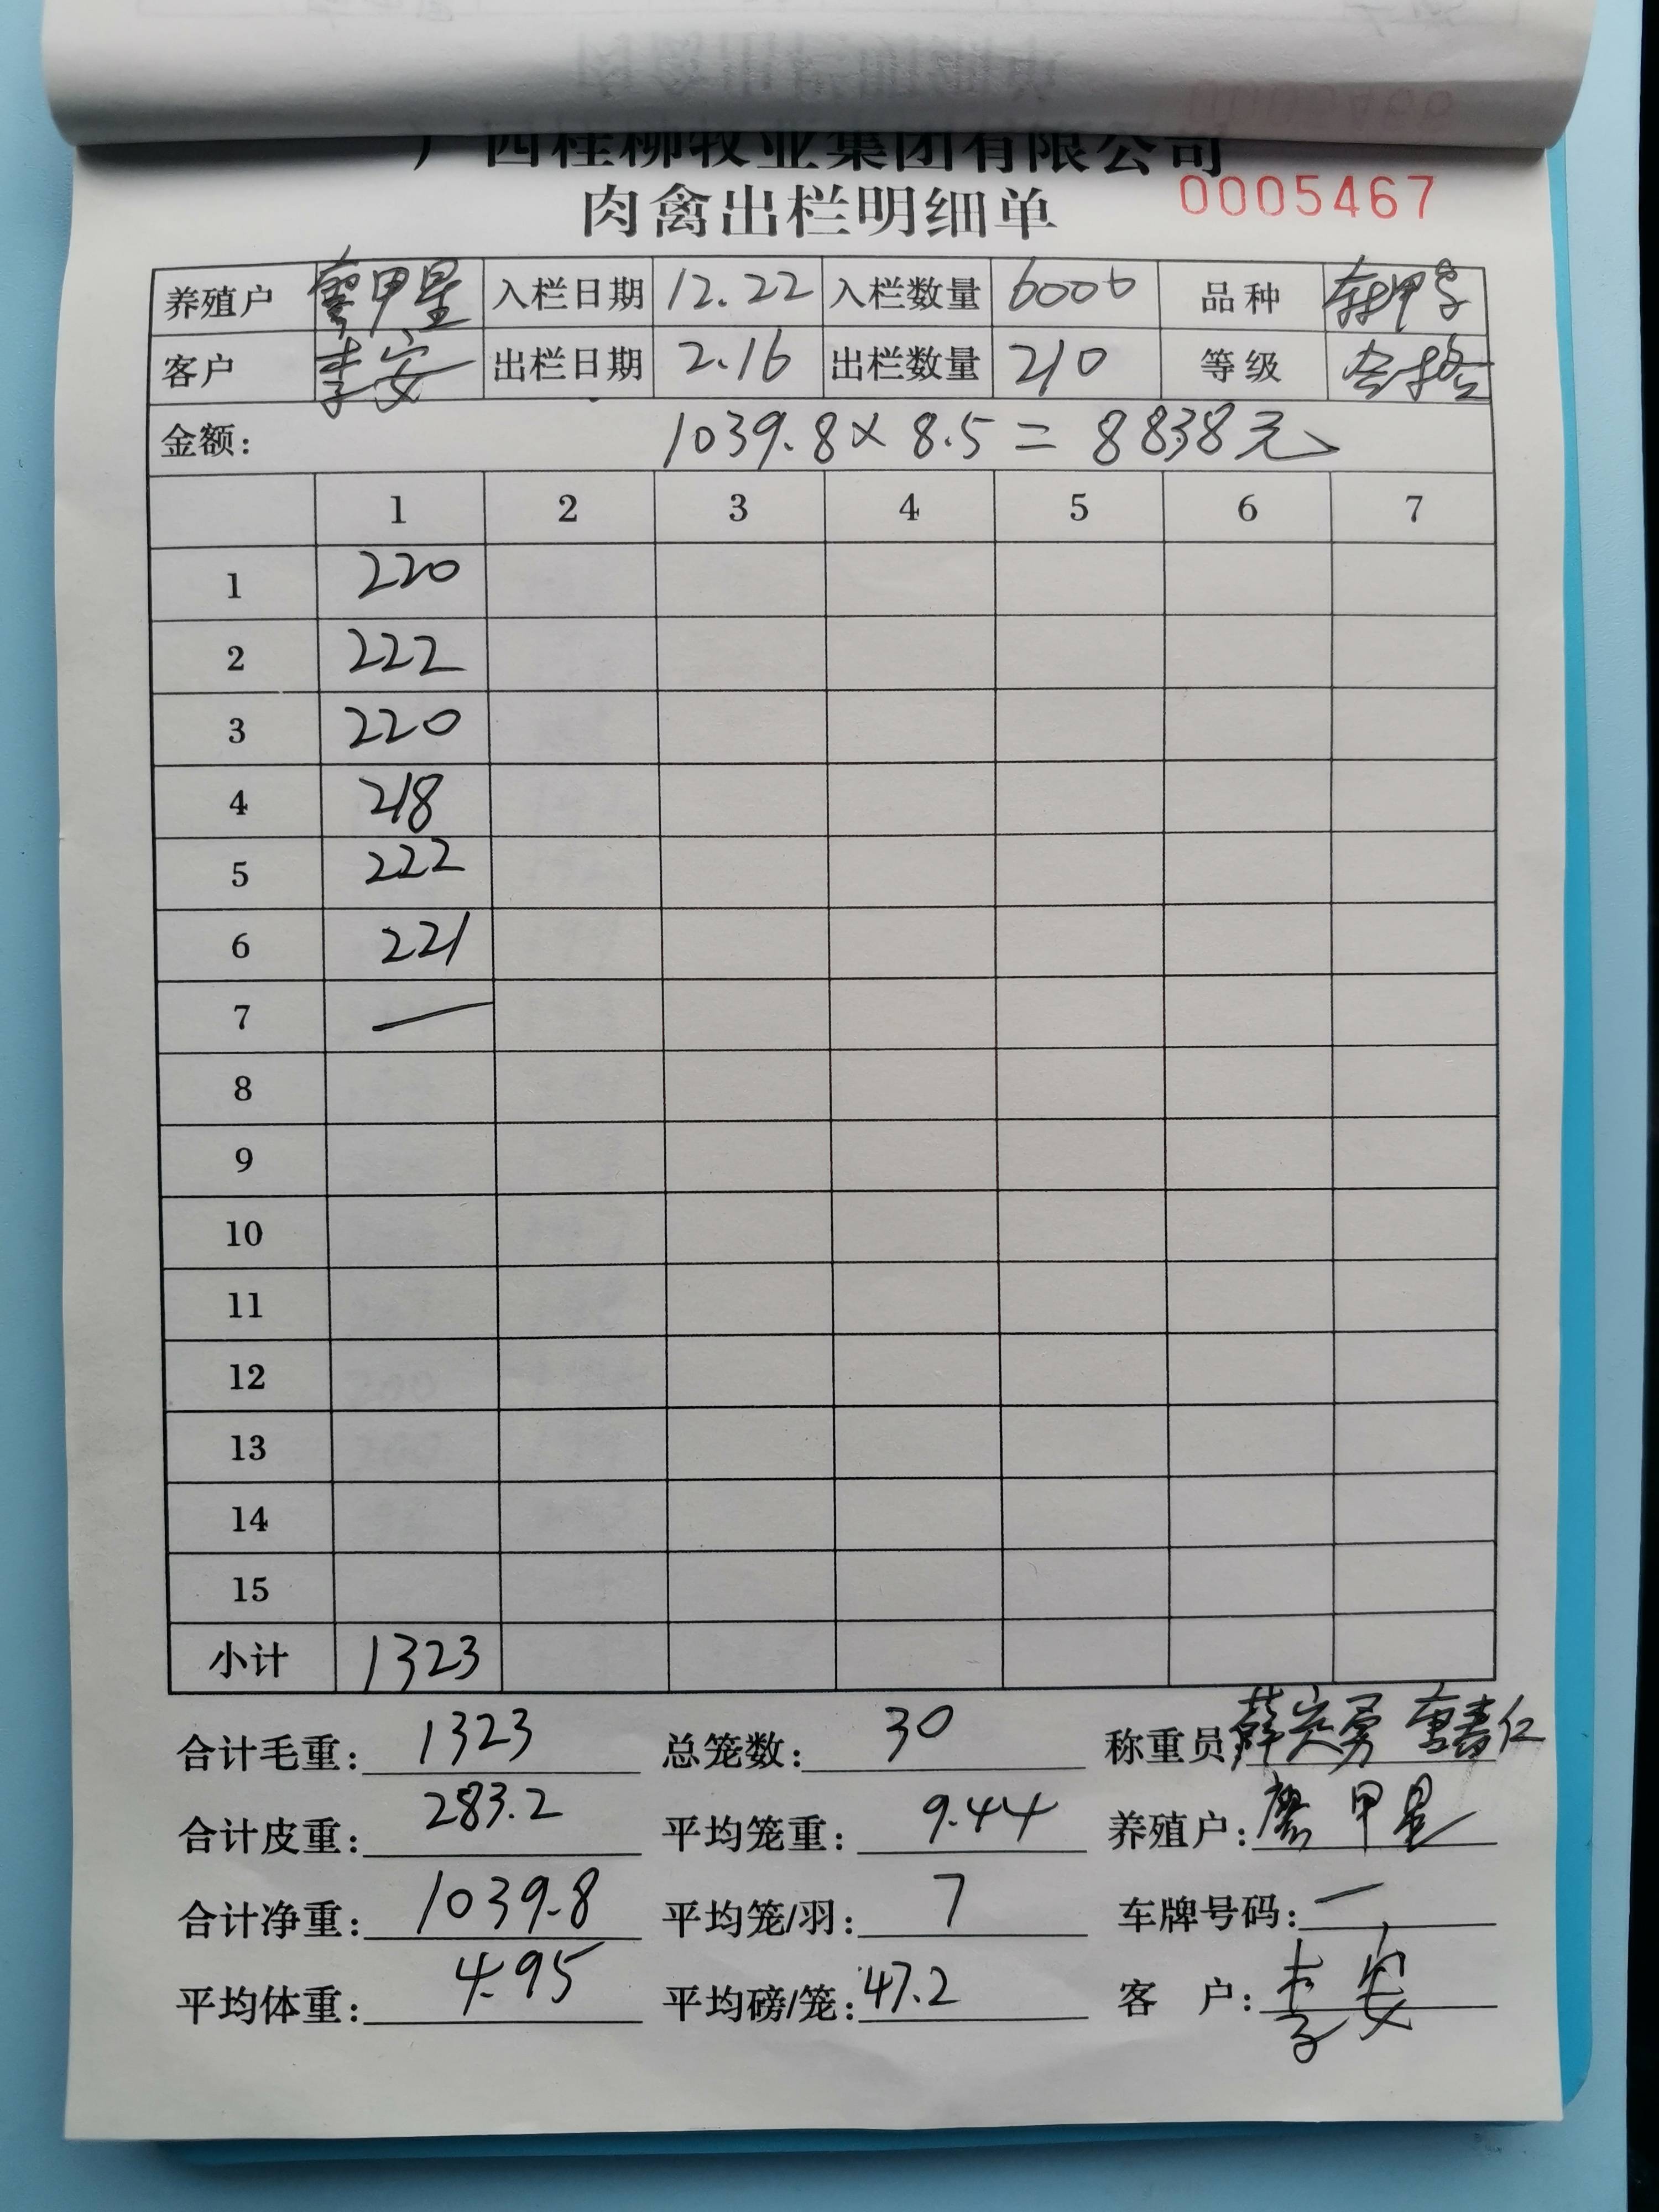 广西桂柳牧业集团有限公司
肉禽出栏明细单 0005467
养殖户 甲星 入栏日期 12.22 入栏数量 6000 品种
客户 李安 出栏日期 2.16 出栏数量 210 等级 合格
金额: 1039.8×8.5=8838元
1 2 3 4 5 6 7
1 220
2 222
3 220
4 218
5 222
6 221
7 —
8
9
10
11
12
13
14
15
小计 1323
合计毛重: 1323 总笼数: 30 称重员
合计皮重: 283.2 平均笼重: 9.44 养殖户: 甲星
合计净重: 1039.8 平均笼/羽: 7 车牌号码: —
平均体重: 4.95 平均磅/笼: 47.2 客 户: 李安